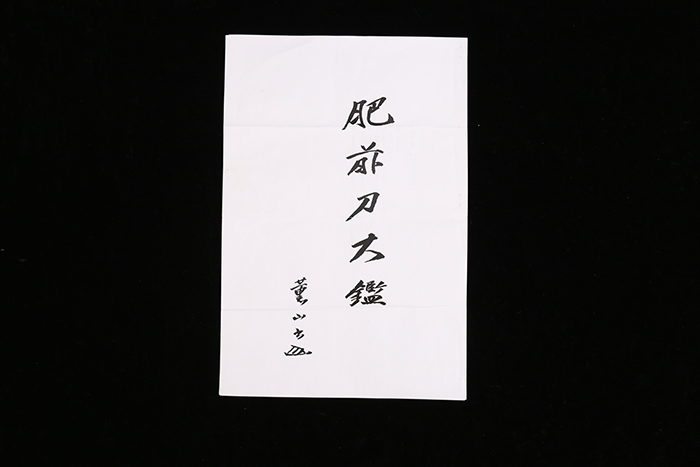 肥前刀大鑑
薫山